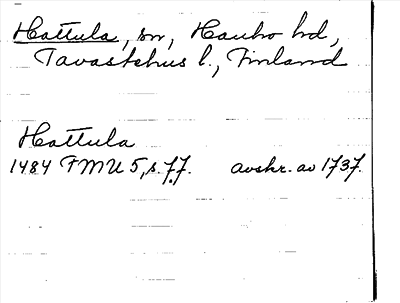 Hattula, sn, Hauho hd,
Tavastehus l., Finland
Hattula
1484 FMU 5, s. 77. avskr. av 1737.